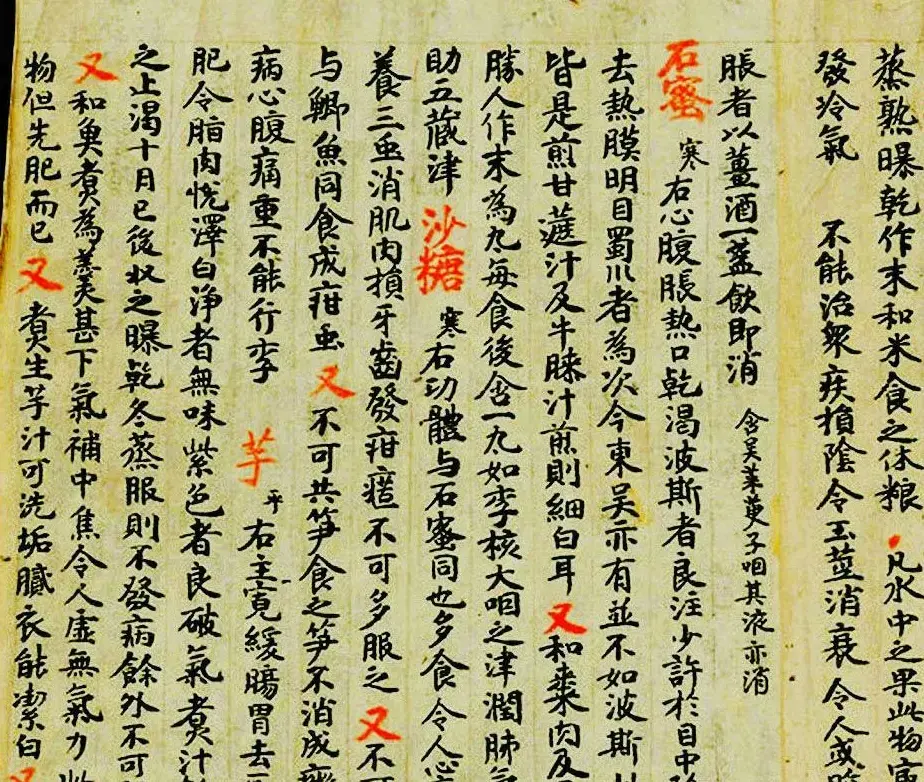 蒸熟曝乾作末和米食之休粮 凡水中之果此物
發冷氣 不能治衆疾損陰令玉莖消衰令人或
脹者以薑酒一盞飲即消 含吴茱萸子咽其液亦消
石蜜 寒 右心腹脹熱口乾渴波斯者良注少許於目中
去熱膜明目蜀川者為次今東吴亦有並不如波斯
皆是煎甘蔗汁及牛膝汁煎則細白耳 又 和棗肉及
勝人作末為丸每食後含一丸如李核大咽之津潤肺氣
助五蔵津 沙糖 寒 右功體与石蜜同也多食令人心
養三虫消肌肉損牙齒發疳䘌不可多服之 又 不可
与鯽魚同食成疳虫 又 不可共笋食之笋不消成
病心腹痛重不能行李 芋 平 右主寛緩腸胃去
肥令脂肉悦澤白淨者無味紫色者良破氣煮汁
之止渴十月已後收之曝乾冬蒸服則不發病餘外不可
又 和魚煮為羹甚下氣補中焦令人虚無氣力
物但先肥而已 又 煮生芋汁可洗垢膩衣能潔白